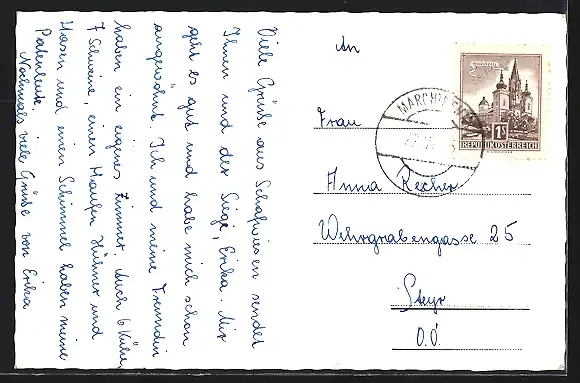 Viele Grüße aus Schafwiesen sendet
Ihnen und der Siege, Erika. Mir
geht es gut und habe mich schon
angewöhnt. Ich und meine Freundin
haben ein eigenes Zimmer. Auch 6 Kühe,
7 Schweine, einen Haufen Hühner und
Hasen und einen Schimmel haben meine
Patenleute.
Nochmals viele Grüße von Erika
An
Frau
Anna Recher
Wehrgrabengasse 25
Steyr
O.Ö.
MARIAZELL
1S
REPUBLIK ÖSTERREICH
MARCHTRENK